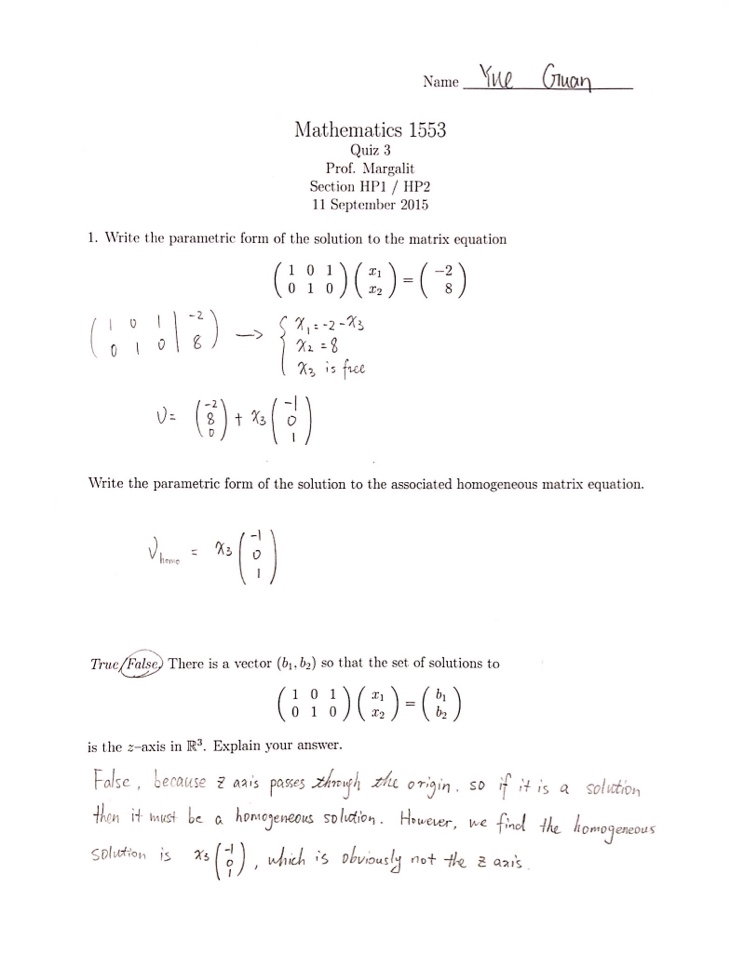 Name Yue Guan
Mathematics 1553
Quiz 3
Prof. Margalit
Section HP1 / HP2
11 September 2015
1. Write the parametric form of the solution to the matrix equation
( 1 0 1 ) ( x₁ ) = ( −2 )
( 0 1 0 ) ( x₂ ) ( 8 )
( 1 0 1 | -2 ) → { x₁ = -2 - x₃
( 0 1 0 | 8 ) x₂ = 8
x₃ is free
V = ( -2 8 0 ) + x₃ ( -1 0 1 )
Write the parametric form of the solution to the associated homogeneous matrix equation.
V homo = x₃ ( -1 0 1 )
True/False There is a vector (b₁, b₂) so that the set of solutions to
( 1 0 1 ) ( x₁ ) = ( b₁ )
( 0 1 0 ) ( x₂ ) ( b₂ )
is the z–axis in ℝ³. Explain your answer.
False, because z axis passes through the origin. so if it is a solution
then it must be a homogeneous solution. However, we find the homogeneous
solution is x₃ ( -1 0 1 ), which is obviously not the z axis.